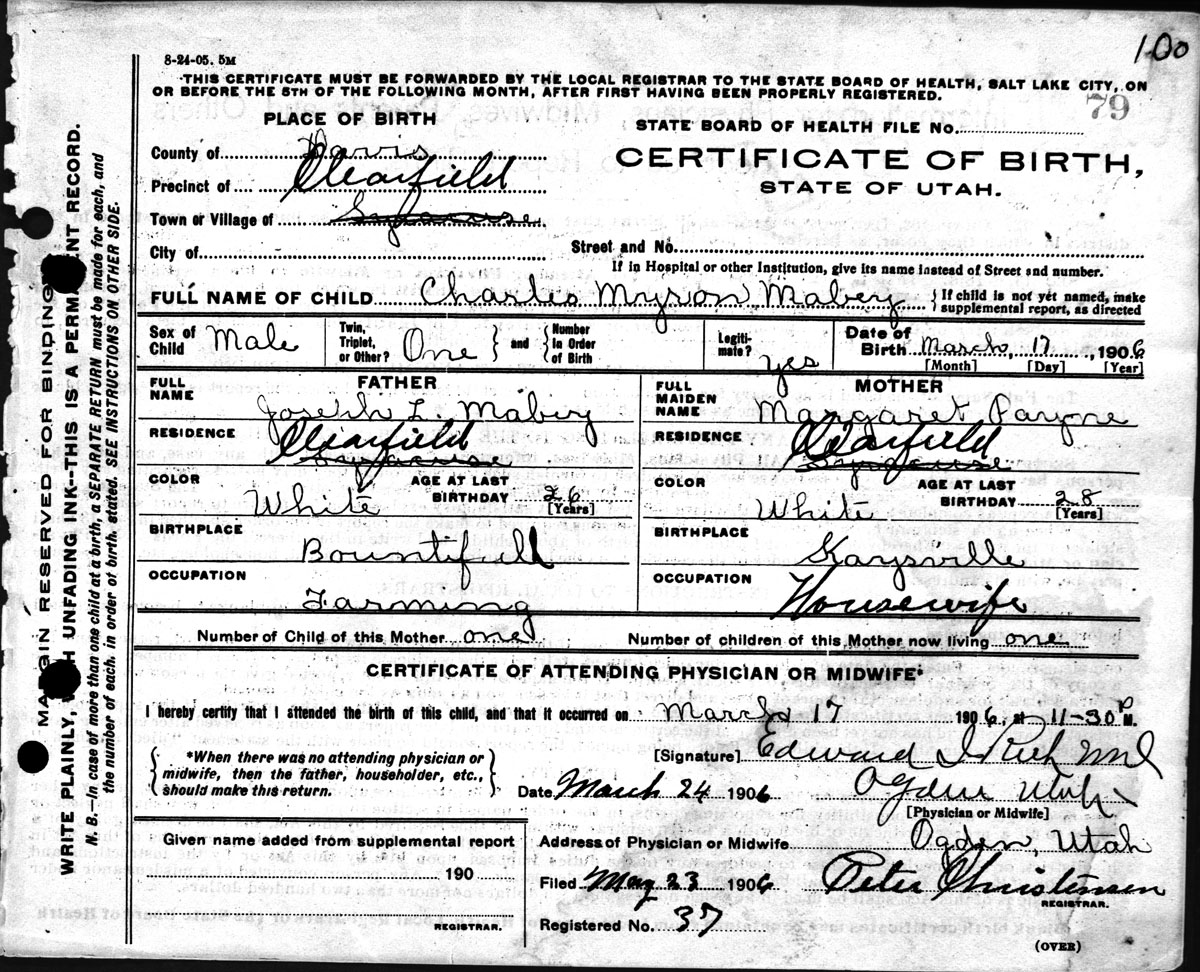 100
8-24-05. 5M
THIS CERTIFICATE MUST BE FORWARDED BY THE LOCAL REGISTRAR TO THE STATE BOARD OF HEALTH, SALT LAKE CITY, ON
OR BEFORE THE 5TH OF THE FOLLOWING MONTH, AFTER FIRST HAVING BEEN PROPERLY REGISTERED.
79
PLACE OF BIRTH
STATE BOARD OF HEALTH FILE No.
County of Davis
CERTIFICATE OF BIRTH,
Precinct of Clearfield
STATE OF UTAH.
Town or Village of Syracuse
City of
Street and No.
If in Hospital or other Institution, give its name instead of Street and number.
FULL NAME OF CHILD Charles Myron Mabey { If child is not yet named, make supplemental report, as directed
Sex of Child Male Twin, Triplet, or Other? One } and { Number in Order of Birth Legitimate? yes Date of Birth March, 17, 1906
[Month] [Day] [Year]
FATHER
FULL NAME Joseph L. Mabey
RESIDENCE Clearfield
Syracuse
COLOR White AGE AT LAST BIRTHDAY 26 [Years]
BIRTHPLACE Bountifull
OCCUPATION Farming
MOTHER
FULL MAIDEN NAME Margaret Payne
RESIDENCE Clearfield
Syracuse
COLOR White AGE AT LAST BIRTHDAY 28 [Years]
BIRTHPLACE Kaysville
OCCUPATION Housewife
Number of Child of this Mother one Number of children of this Mother now living one
CERTIFICATE OF ATTENDING PHYSICIAN OR MIDWIFE*
I hereby certify that I attended the birth of this child, and that it occurred on March 17 1906, at 11-30 P M.
{ *When there was no attending physician or midwife, then the father, householder, etc., should make this return. }
[Signature] Edward I Rich MD
Date March 24 1906 Ogden Utah
[Physician or Midwife]
Given name added from supplemental report
190
REGISTRAR.
Address of Physician or Midwife Ogden, Utah
Filed May 23 1906 Peter Christensen
REGISTRAR.
Registered No. 37
(OVER)
MARGIN RESERVED FOR BINDING
WRITE PLAINLY, WITH UNFADING INK--THIS IS A PERMANENT RECORD.
N. B.—In case of more than one child at a birth, a SEPARATE RETURN must be made for each, and
the number of each, in order of birth, stated. SEE INSTRUCTIONS ON OTHER SIDE.